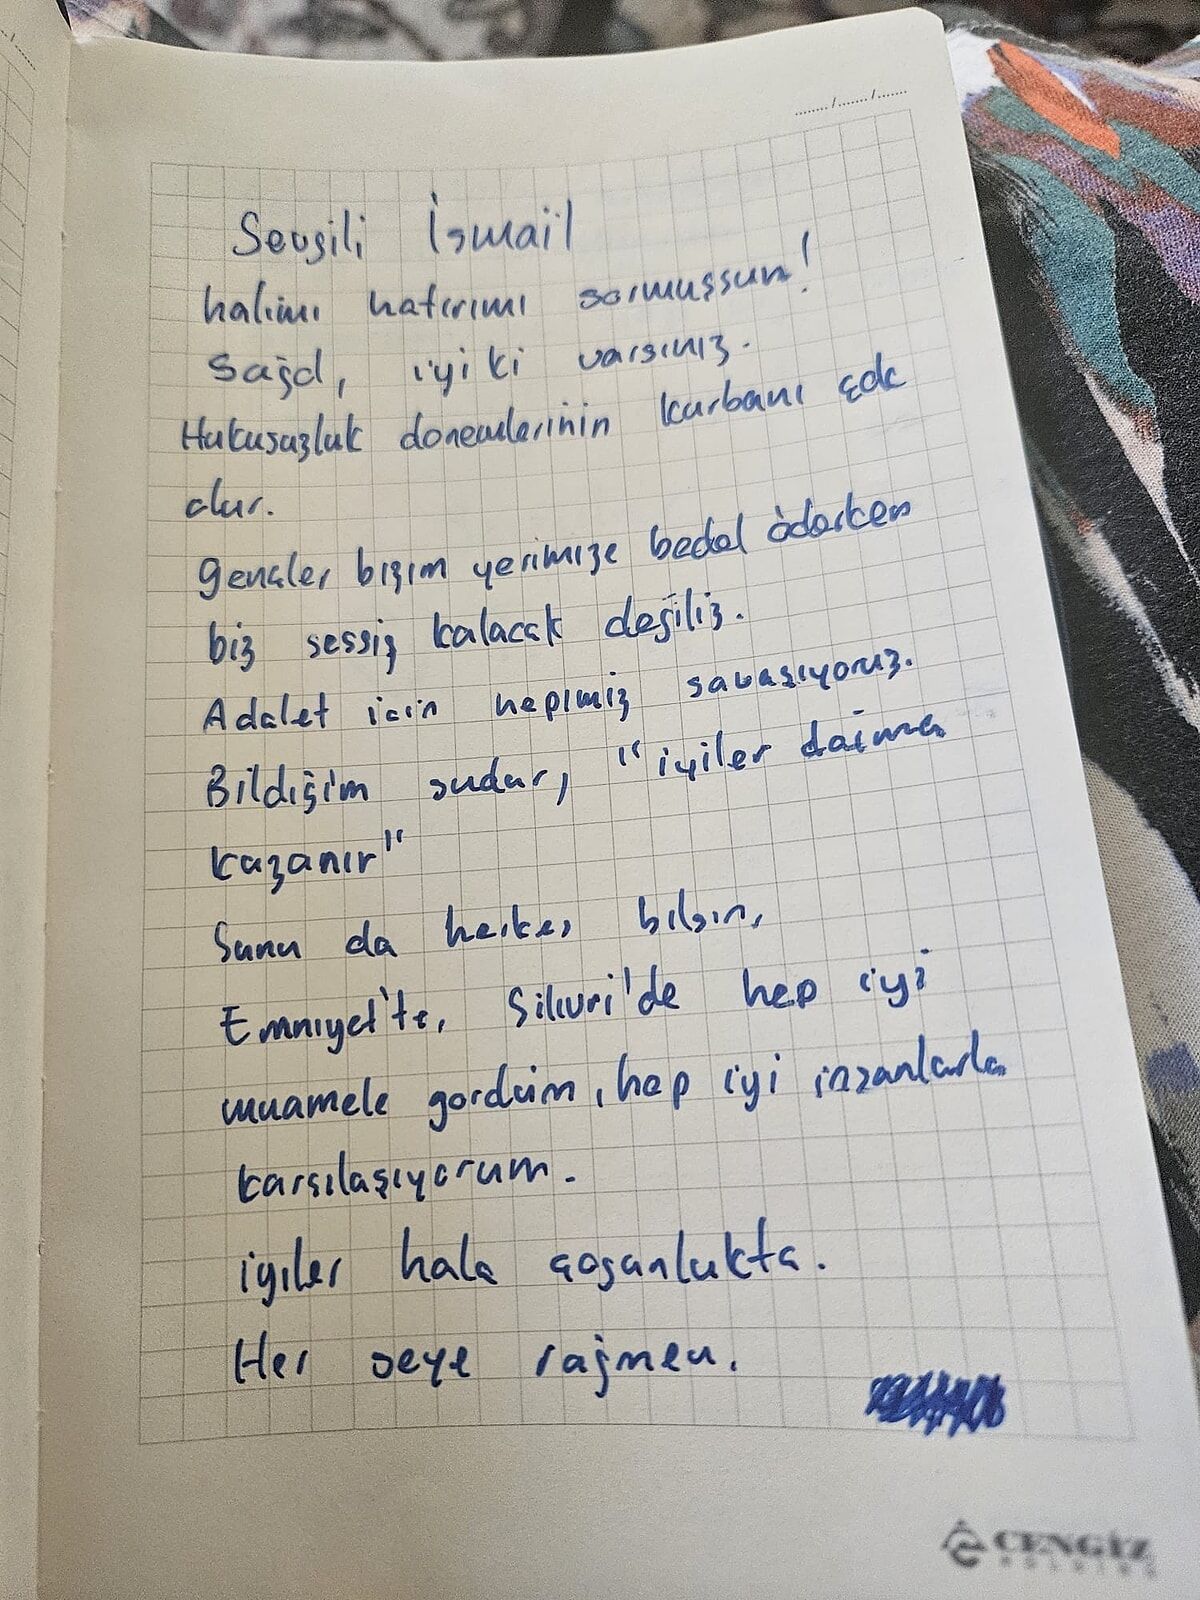 ......../......./.......
Sevgili İsmail
halimi hatırımı sormuşsun!
Sağol, iyi ki varsınız.
Hukusuzluk donemlerinin kurbanı çok
olur.
Gençler bizim yerimize bedel öderken
biz sessiz kalacak değiliz.
Adalet icin hepimiz savaşıyoruz.
Bildiğim sudur, "iyiler daima
kazanır"
Sunu da herkes bilsin,
Emniyet'te, Silivri'de hep iyi
muamele gordüm, hep iyi insanlarla
karsılaşıyorum.
iyiler hala çoğunlukta.
Her seye rağmen.
CENGİZ
HOLDİNG